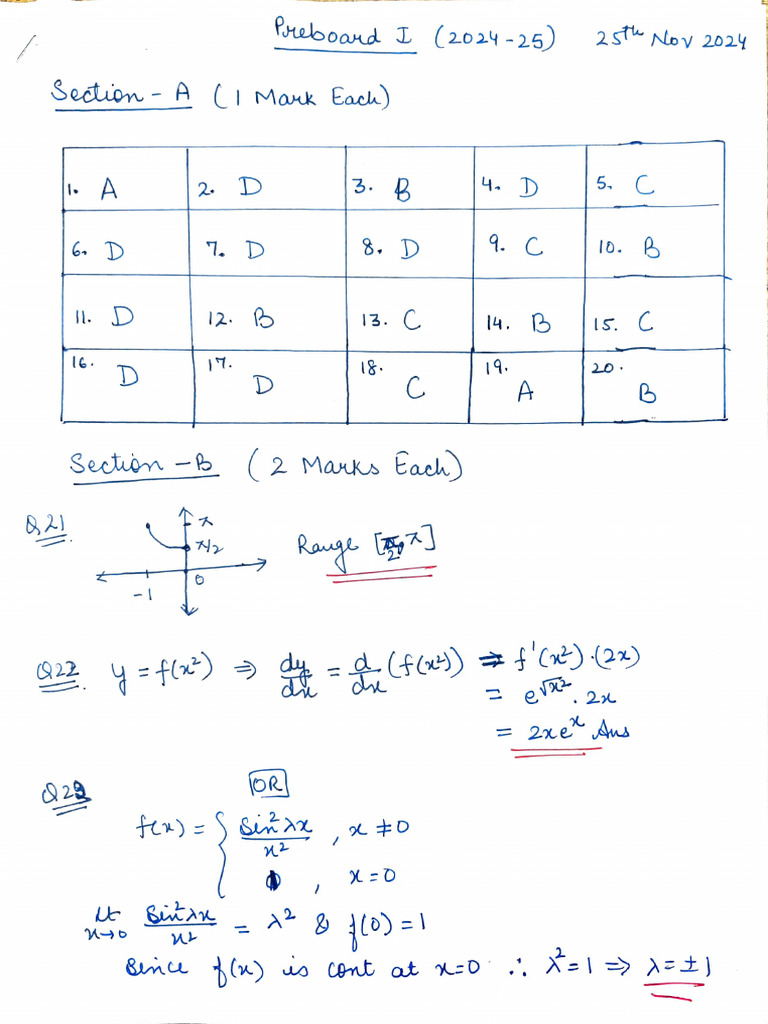 Preboard I (2024-25) 25th Nov 2024
Section - A (1 Mark Each)
1. A 2. D 3. B 4. D 5. C
6. D 7. D 8. D 9. C 10. B
11. D 12. B 13. C 14. B 15. C
16. D 17. D 18. C 19. A 20. B
Section - B (2 Marks Each)
Q21 π π/2 0 -1 Range [π/2, π]
Q22 y = f(x²) ⇒ dy/dx = d/dx (f(x²)) ⇒ f'(x²)·(2x)
= e^√x² . 2x
= 2xe^x Ans
OR
Q22
f(x) = { sin²λx/x² , x ≠ 0
1 , x = 0
lt x→0 sin²λx/x² = λ² & f(0) = 1
Since f(x) is cont at x=0 ∴ λ²=1 ⇒ λ=±1